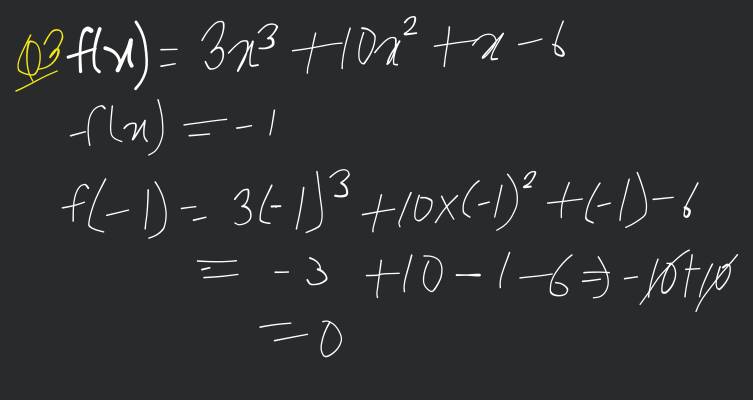 Q3 f(x) = 3x³ + 10x² + x - 6
f(x) = -1
f(-1) = 3(-1)³ + 10×(-1)² + (-1) - 6
= -3 + 10 - 1 - 6 ⇒ -10 + 10
= 0